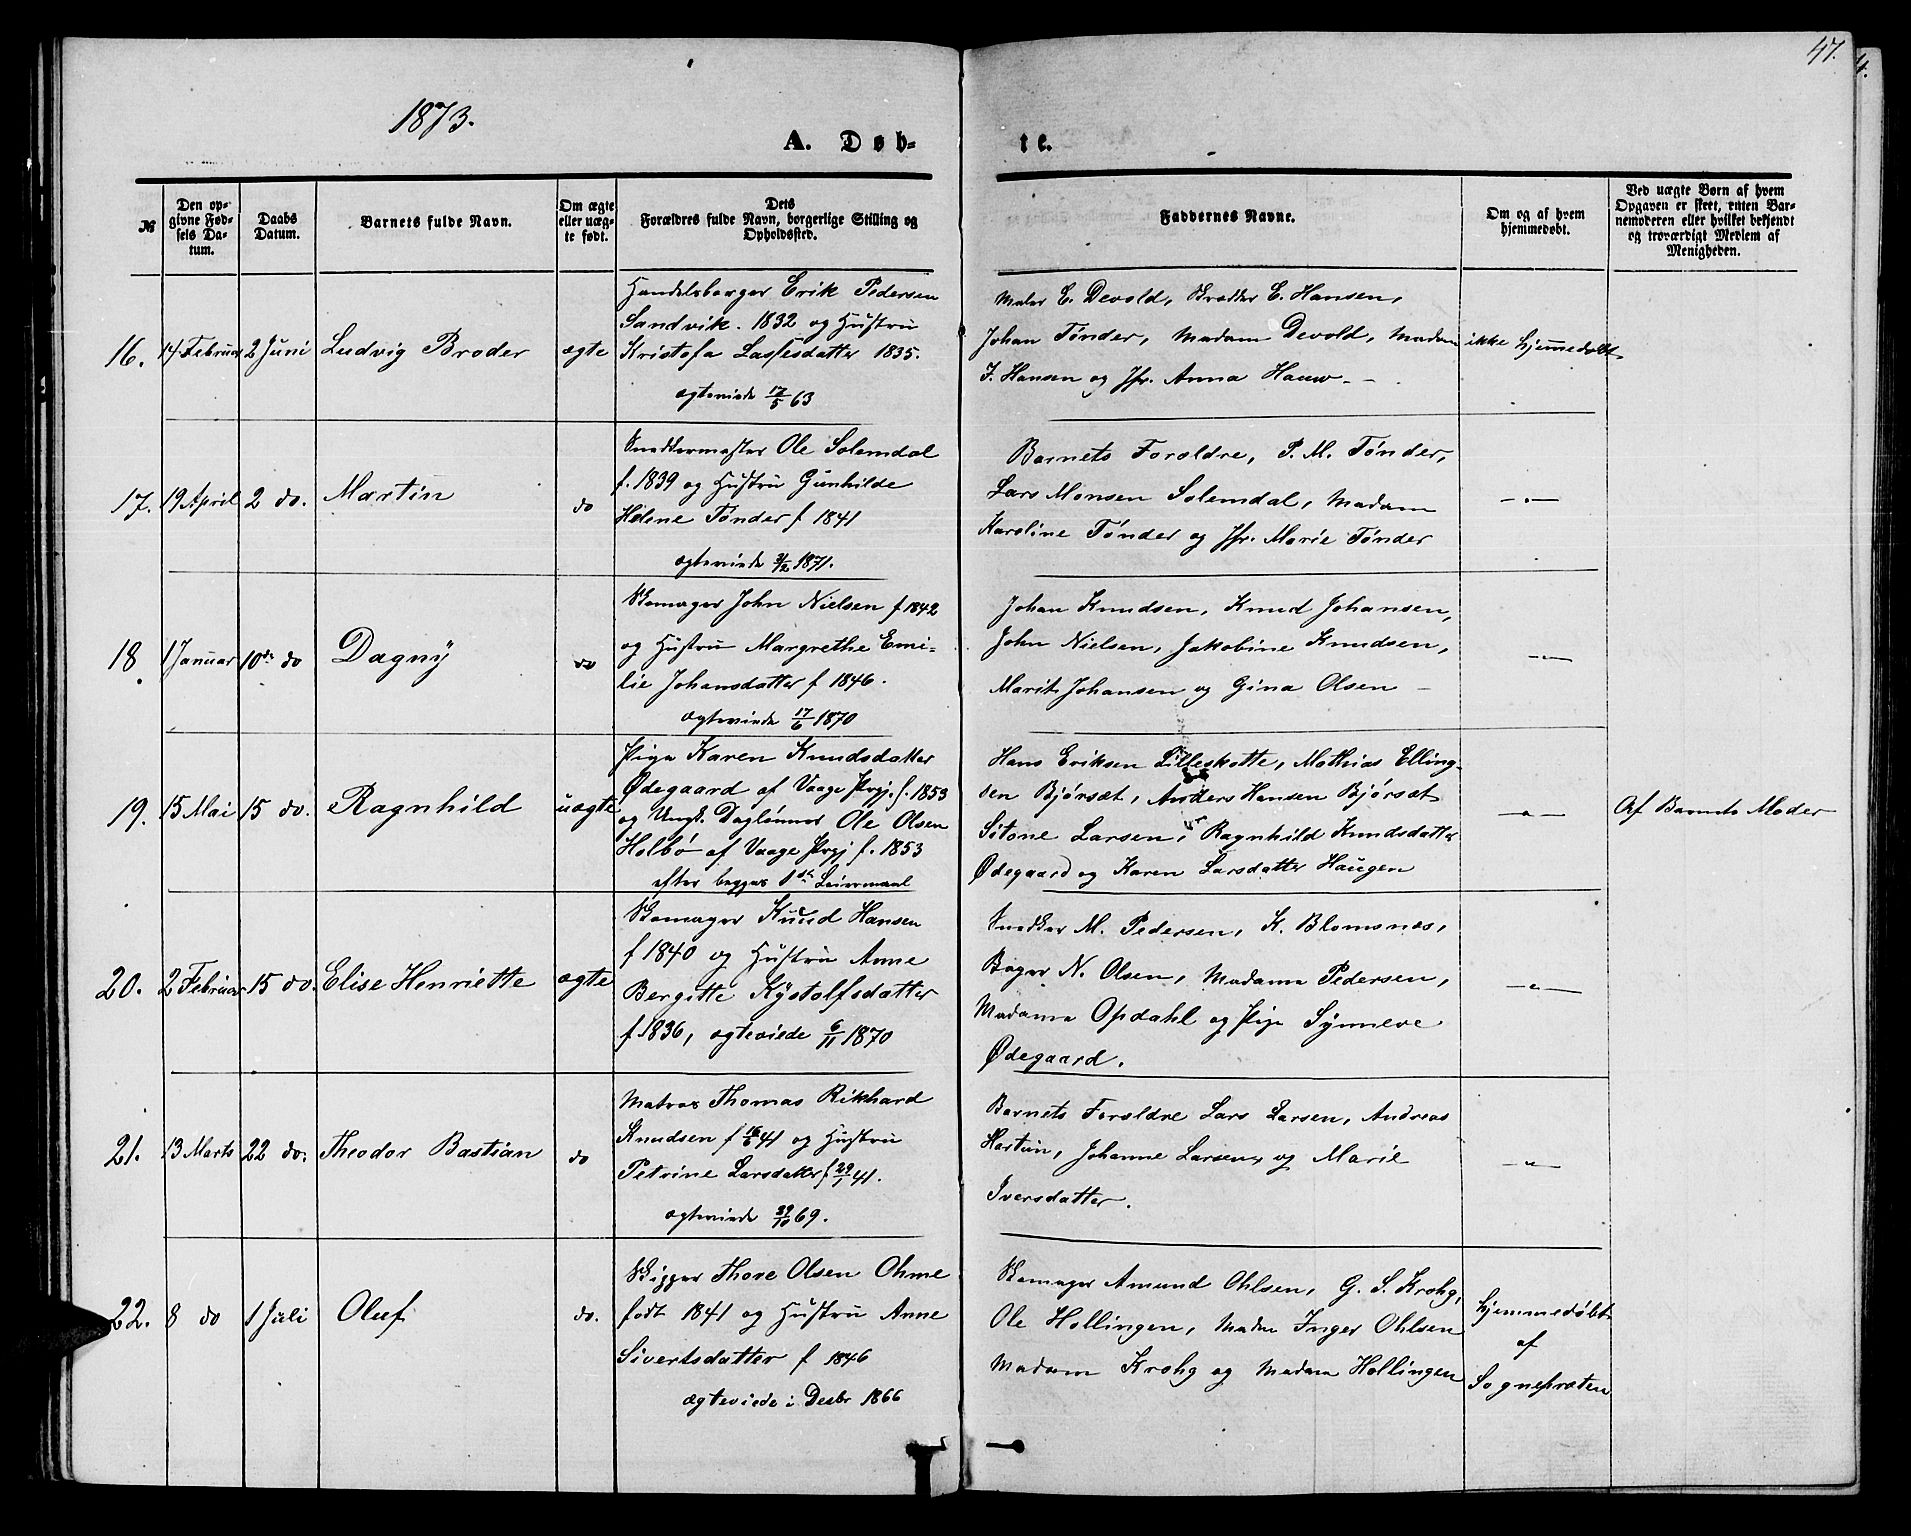 47.
4.
1873.
A. Døb-
te.
№
Den op-
givne Fød-
sels Da-
tum.
Daabs
Datum.
Barnets fulde Navn.
Om ægte
eller uæg-
te født.
Dets
Forældres fulde Navn, borgerlige Stilling og
Opholdssted.
Faddernes Navne.
Om og af hvem
hjemmedøbt.
Ved uægte Børn af hvem
Opgaven er skeet, enten Bar-
nemoderen eller hvilket bekjendt
og troværdigt Medlem af
Menigheden.
16.
14 Februar
2 Juni
Ludvig Broder
ægte
Handelsborger Erik Pedersen
Sandvik. 1832 og Hustru
Kristofa Lassesdatter 1835.
ægteviede 17/5 63
Maler E. Devold, Snedker E. Hansen,
Johan Tønder, Madam Devold, Madam
F. Hansen og Jfr. Anna Hauw -
ikke hjemmedøbt
17.
19 April
2 do.
Martin
do
Snedkermester Ole Solemdal
f. 1839 og Hustru Gunhilde
Helene Tønder f 1841
ægteviede 3/2 1871.
Barnets Foræld­re, P. M. Tønder,
Lars Monsen Solemdal, Madam
Karoline Tønder og Jfr. Marie Tønder
-"-
18.
1 Januar
10de do
Dagny
do
Skomager John Nielsen f 1842
og Hustru Margrethe Emi-
lie Johansdatter f 1846.
ægteviede 17/6 1870
Johan Knudsen, Knud Johansen,
John Nielsen, Jakobine Knudsen,
Marit Johansen og Gina Olsen -
-"-
19.
15 Mai
15 do.
Ragnhild
uægte
Pige Karen Knudsdatter
Ødegaard af Vaage Prgj. f. 1853
og Ungk. Daglønner Ole Olsen
Holbø af Vaage Prgj f. 1853
efter begges 1ste Leiermaal
Hans Eriksen Lilleskotte, Mathias Elling-
sen Bjørsæt, Anders Hansen Bjørsæt
Sitone Larsen, Ragnhild Knudsdatter
Ødegaard og Karen Larsdatter Haugen
-"-
Af Barnets Moder
20.
2 Februar
15 do.
Elise Henriette
ægte
Skomager Knud Hansen
f 1840 og Hustru Anne
Bergitte Kystolfsdatter
f 1836, ægteviede 6/11 1870
Snedker M. Pedersen, K. Blomsnes,
Bager N. Olsen, Madame Pedersen,
Madame Opdahl og Pige Synneve
Ødegaard.
-"-
21.
13 Marts
22 do.
Theodor Bastian
do
Matros Thomas Rikhard
Knudsen f 16/6 41 og Hustru
Petrine Larsdatter f 29/1 41.
ægteviede 29/10 69.
Barnets Forældre Lars Larsen, Andreas
Hartun, Johanne Larsen, og Marie
Iversdatter.
-"-
22.
8 do
1 Juli
Oluf
do.
Skipper Thore Olsen Ohme
født 1841 og Hustru Anne
Sivertsdatter f 1846
ægteviede i Decbr 1866
Skomager Amund Ohlsen, G. S. Krohg,
Ole Hollingen, Madm Inger Ohlsen
Madam Krohg og Madam Hollingen
hjemmedøbt
af
Sognepræsten